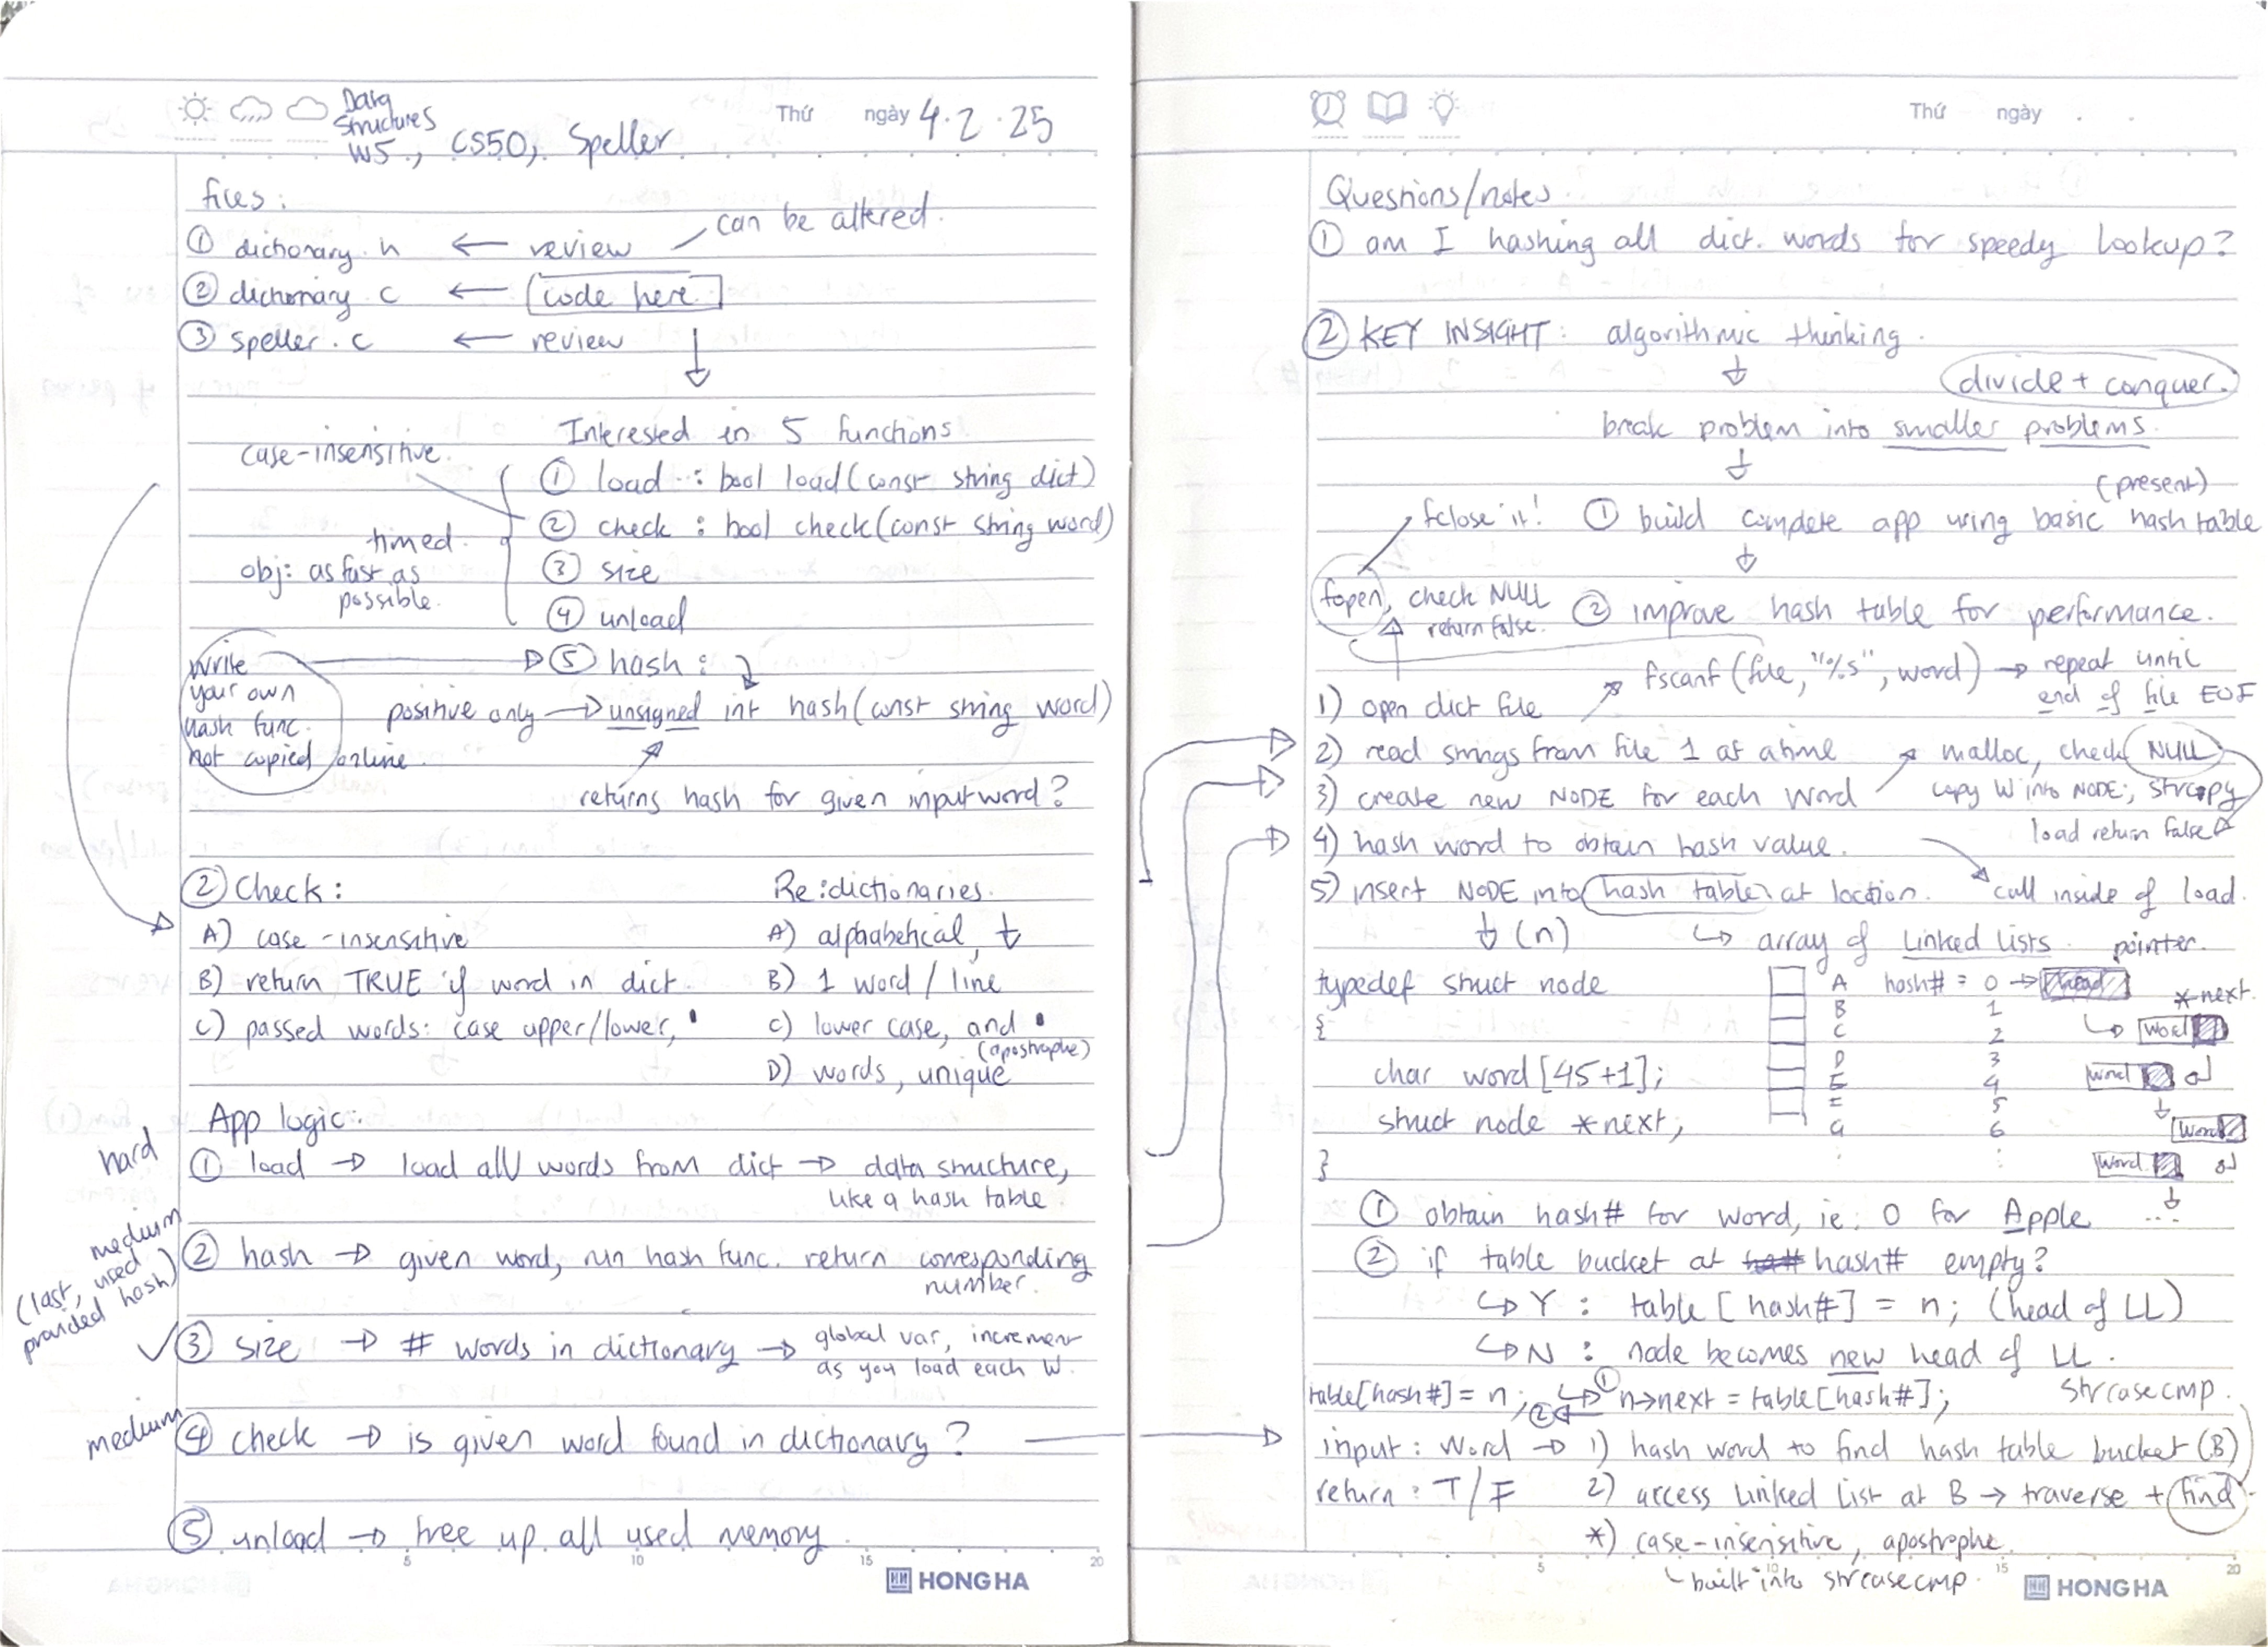 Data
Structures
W5., CS50, Speller
Thứ ngày 4.2.25
files:
① dictionary.h ← review — can be altered.
② dictionary.c ← [code here]
③ speller.c ← review
Interested in 5 functions
case-insensitive.
① load : bool load(const string dict)
② check : bool check(const string word)
timed.
obj: as fast as
possible.
③ size
④ unload
write
your own
hash func.
not copied online.
⑤ hash :
positive only → unsigned int hash(const string word)
returns hash for given input word?
② Check:
A) case-insensitive
B) return TRUE if word in dict.
C) passed words: case upper/lower, '
Re: dictionaries.
A) alphabetical, ↓
B) 1 word / line
C) lower case, and '
(apostrophe)
D) words, unique
App logic:
hard
① load → load all words from dict → data structure,
like a hash table.
medium
(last, used
provided hash)
② hash → given word, run hash func. return corresponding
number.
✓ ③ size → # words in dictionary → global var, increment
as you load each W.
medium
④ check → is given word found in dictionary?
⑤ unload → free up all used memory.
5 10 15 20
HONG HA
Thứ ngày . .
Questions/notes.
① am I hashing all dict. words for speedy lookup?
② KEY INSIGHT: algorithmic thinking.
↓
divide + conquer.
break problem into smaller problems.
↓
(present)
fclose it! ① build complete app using basic hash table
↓
fopen, check NULL
return false.
② improve hash table for performance.
fscanf(file, "%s", word) → repeat until
end of file EOF
1) open dict file
2) read strings from file 1 at a time
malloc, check NULL
3) create new NODE for each word
copy W into NODE; strcopy
load return false
4) hash word to obtain hash value.
call inside of load.
5) insert NODE into hash table at location.
↓ (n) ↳ array of linked lists. pointer.
typedef struct node
{
char word[45+1];
struct node *next;
}
A hash# = 0 → head
B 1
C 2
D 3
E 4
F 5
G 6
: :
*next.
↳ word
word
word
word
...
① obtain hash# for word, ie: 0 for Apple
② if table bucket at hash# empty?
↳ Y : table[hash#] = n; (head of LL)
↳ N : node becomes new head of LL.
table[hash#] = n; ② ← ↳ ① n→next = table[hash#];
strcasecmp.
input: Word → 1) hash word to find hash table bucket (B)
return: T/F 2) access Linked List at B → traverse + find.
*) case-insensitive, apostrophe.
↳ built into strcasecmp.
5 10 15 20
HONG HA